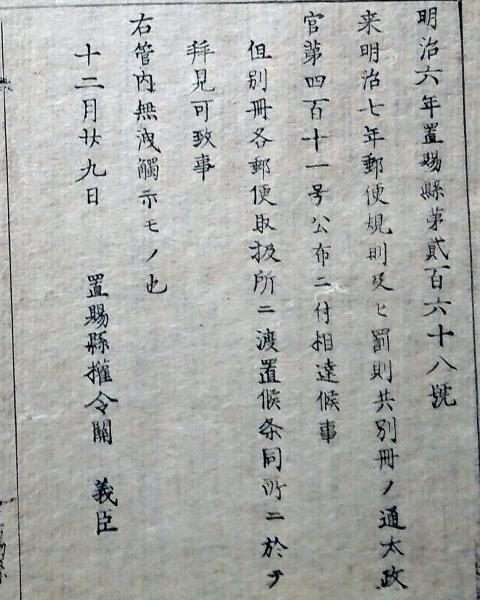 明治六年置賜縣第貳百六十八號
来明治七年郵便規則及ヒ罰則共別冊ノ通太政
官第四百十一号公布ニ付相達候事
但別冊各郵便取扱所ニ渡置候条同所ニ於テ
拜見可致事
右管内無洩觸示モノ也
十二月廿九日 置賜縣權令關 義臣